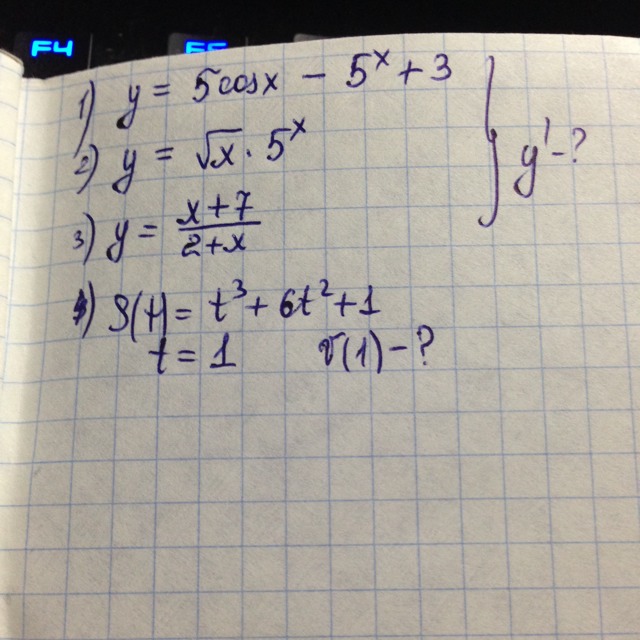 F4 F5
1) y = 5cosx − 5^x + 3
2) y = √x · 5^x
y' − ?
3) y = (x+7)/(2+x)
4) S(t) = t³ + 6t² + 1
t = 1 v(1) − ?